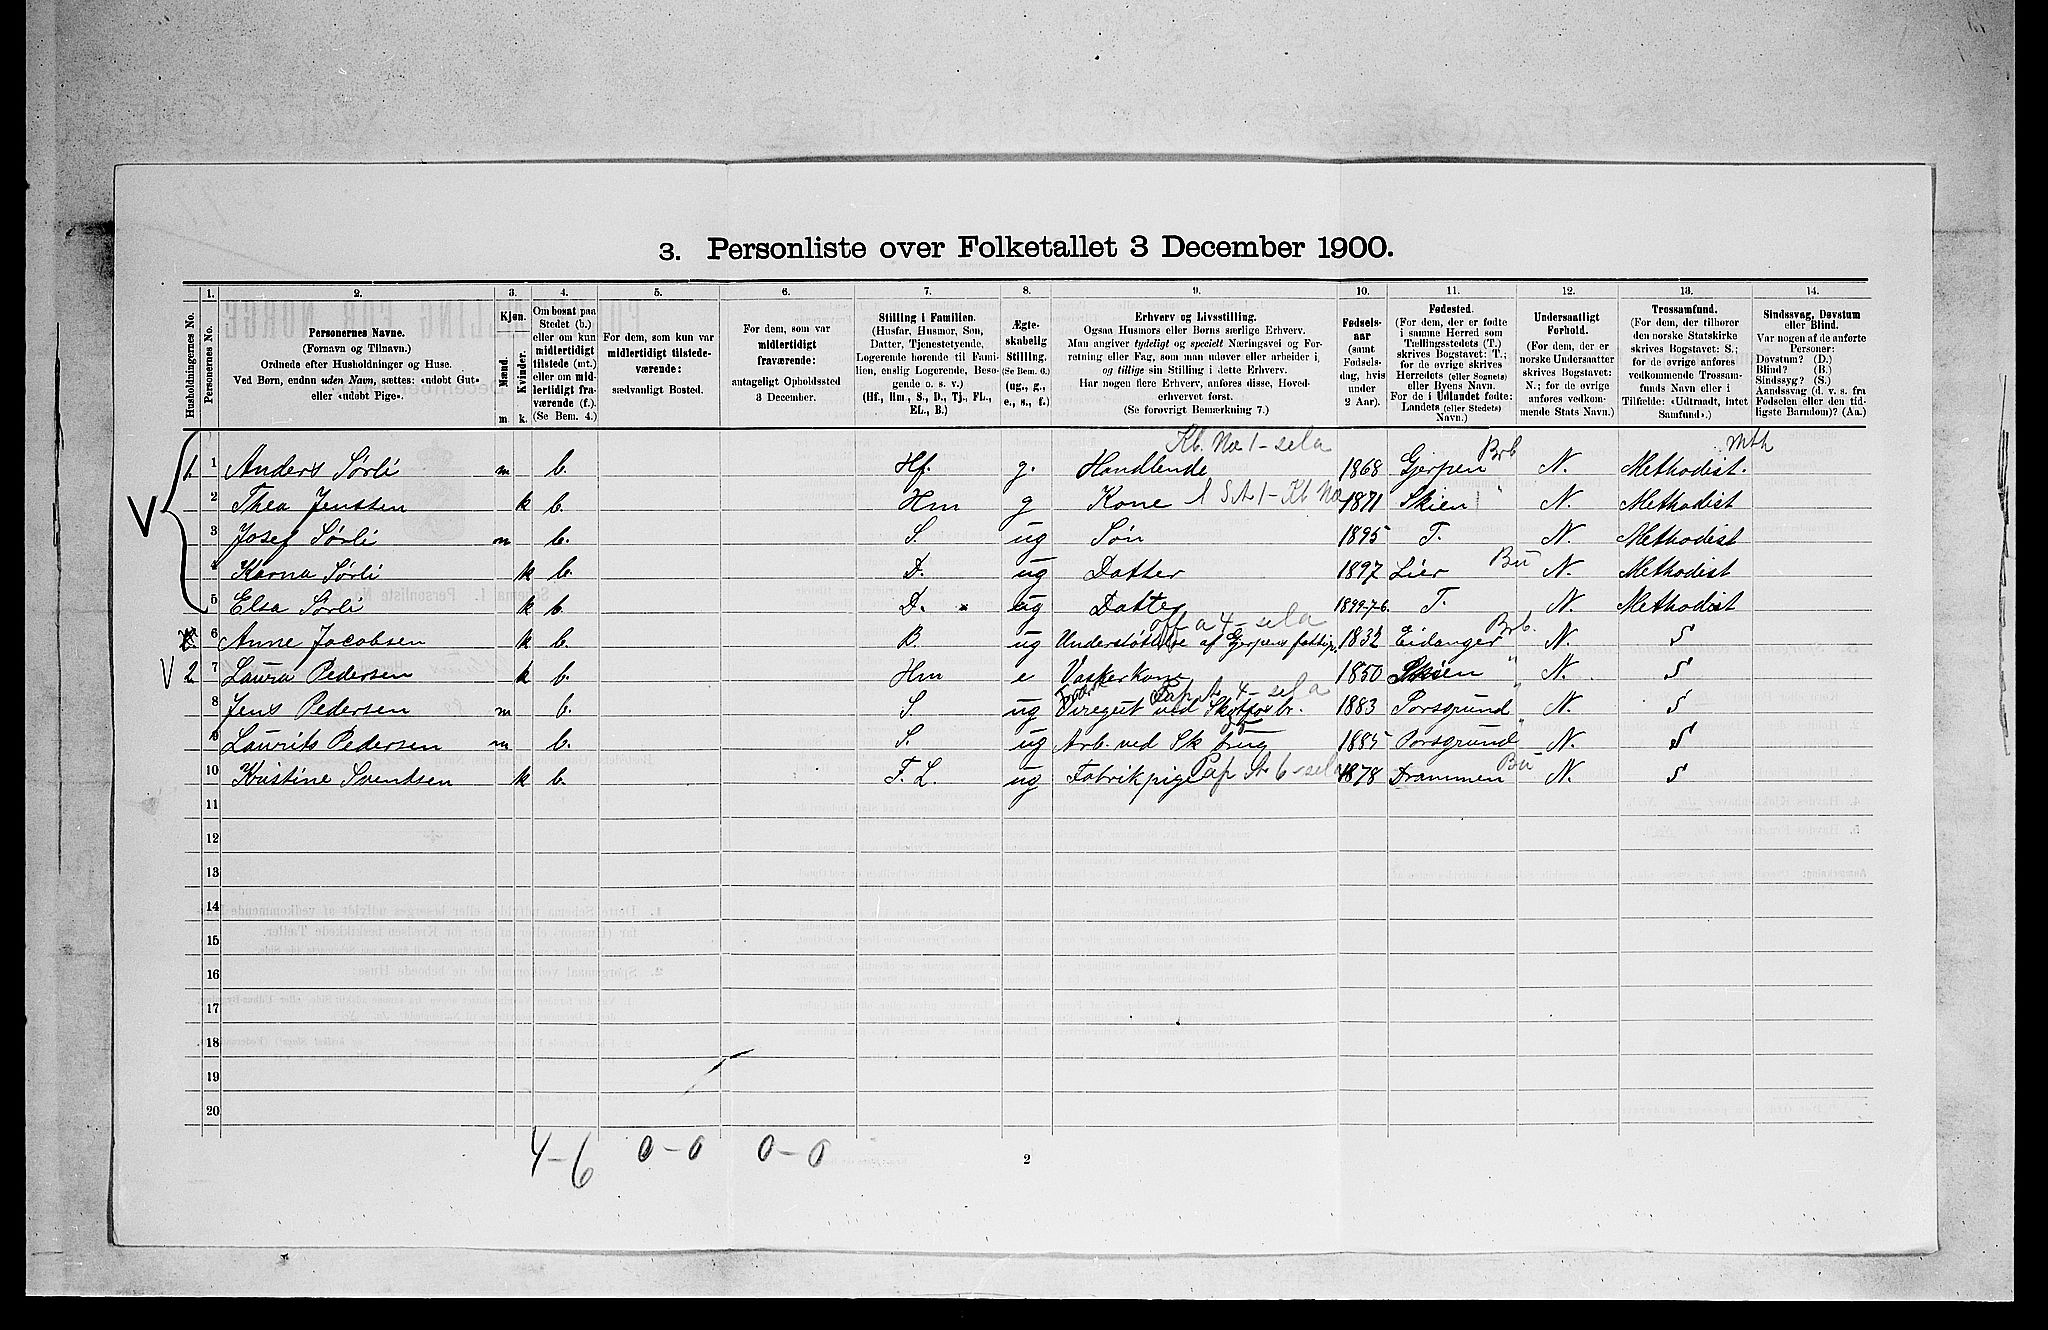 3. Personliste over Folketallet 3 December 1900.
1. 2. 3. 4. 5. 6. 7. 8. 9. 10. 11. 12. 13. 14.
Husholdningernes No.
Personernes No.
Personernes Navne.
(Fornavn og Tilnavn.)
Ordnede efter Husholdninger og Huse.
Ved Børn, endnu uden Navn, sættes: «udøbt Gut»
eller «udøbt Pige».
Kjøn.
Mænd.
Kvinder.
m k.
Om bosat paa
Stedet (b.)
eller om kun
midlertidigt
tilstede (mt.)
eller om mid-
lertidigt fra-
værende (f.).
(Se Bem. 4.)
For dem, som kun var
midlertidigt tilstede-
værende:
sædvanligt Bosted.
For dem, som var
midlertidigt
fraværende:
antageligt Opholdssted
3 December.
Stilling i Familien.
(Husfar, Husmor, Søn,
Datter, Tjenestetyende,
Logerende hørende til Fami-
lien, enslig Logerende, Besø-
gende o. s. v.)
(Hf., Hm., S., D., Tj., FL.,
EL., B.)
Ægte-
skabelig
Stilling.
(Se Bem. 6.)
(ug., g.,
e., s., f.)
Erhverv og Livsstilling.
Ogsaa Husmors eller Børns særlige Erhverv.
Man angiver tydeligt og specielt Næringsvei og For-
retning eller Fag, som man udøver eller arbeider i,
og tillige sin Stilling i dette Erhverv.
Har nogen flere Erhverv, anføres disse, Hoved-
erhvervet først.
(Se forøvrigt Bemerkning 7.)
Fødsels-
aar
(samt
Fødsels-
dag, hvis
under
2 Aar).
Fødested.
(For dem, der er fødte
i samme Herred som
Tællingsstedets (T.)
skrives Bogstavet: T.;
for de øvrige skrives
Herredets (eller Sognets)
eller Byens Navn.
For de i Udlandet fødte:
Landets (eller Stedets)
Navn.)
Undersaatligt
Forhold.
(For dem, der er
norske Undersaatter
skrives Bogstavet:
N.; for de øvrige
anføres vedkom-
mende Stats Navn.)
Trossamfund.
(For dem, der tilhører
den norske Statskirke
skrives Bogstavet: S.;
for de øvrige anføres
vedkommende Trossam-
funds Navn eller i
Tilfælde: «Udtraadt, intet
Samfund».)
Sindssvag, Døvstum
eller Blind.
Var nogen af de anførte
Personer:
Døvstum? (D.)
Blind? (B.)
Sindssyg? (S.)
Aandssvag (d. v. s. fra
Fødselen eller den tid-
ligste Barndom)? (Aa.)
Kb. No 1 - sela Brb mth
1. 1 Anders Sørli m b. Hf. g. Handlende 1868 Gjerpen N. Methodist.
V 2 Thea Jenssen k b. Hm g Kone 1871 Skien " N. Methodist
3 Josef Sørli m b. S. ug Søn 1895 T. N. Methodist
4 Karna Sørli k b. D. ug Datter 1897 Lier Bu N. Methodist
5 Elsa Sørli k b. D. ug Datter 1899-7-6. T. N. Methodist
off a 4 - sela
6 Anne Jacobsen k b. B. ug Understøttelse af Gjerpens fattigv. 1832 Eidanger Brb. N. S
V 2 7 Laura Pedersen k b. Hm e Vaskerkone 1850 Skien " N. S
Pap A 4 - sela
8 Jens Pedersen m b. S. ug Viregut ved Skotfos br. 1883 Porsgrund " N. S
9 Laurits Pedersen m b. S. ug Arb. ved Sk brug 1885 Porsgrund " N. S
10 Kristine Svendsen k b. F. L. ug Fabrikpige Pap Ar 6 - sela 1878 Drammen Bu N. S
11
12
13
14
15
16
17
18
19
20
4-6 0-0 0-0
2